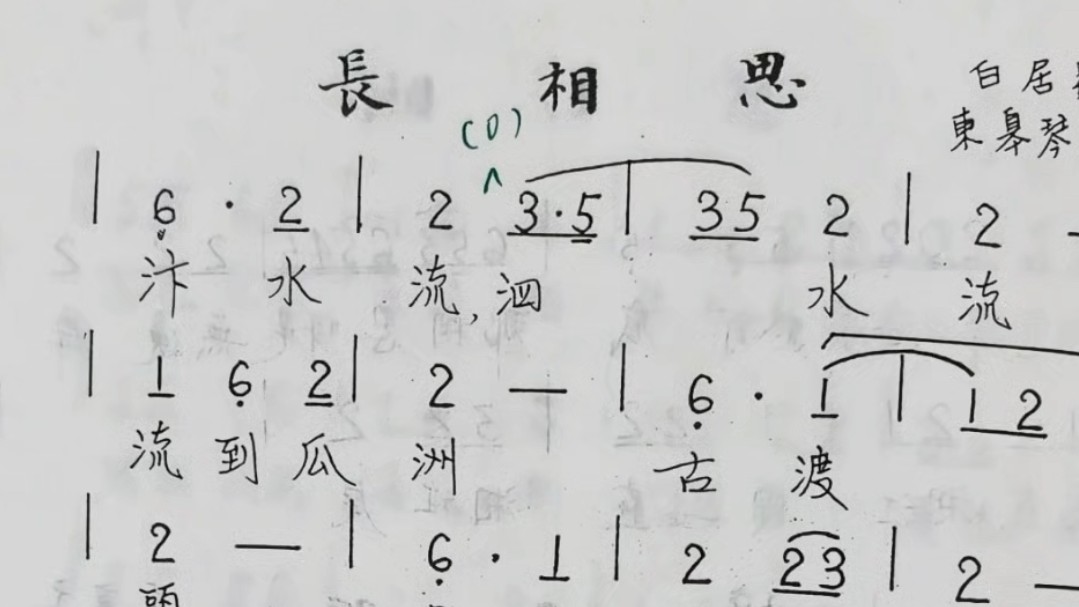 長 相 思
白居
東皋琴
(0)
^
| 6 · 2 | 2 3·5 | 35 2 | 2 -
汴 水 流, 泗 水 流
| 1 6 2 | 2 — | 6 · 1 | 1 2
流 到 瓜 洲 古 渡
| 2 — | 6 · 1 | 2 23 | 2 —